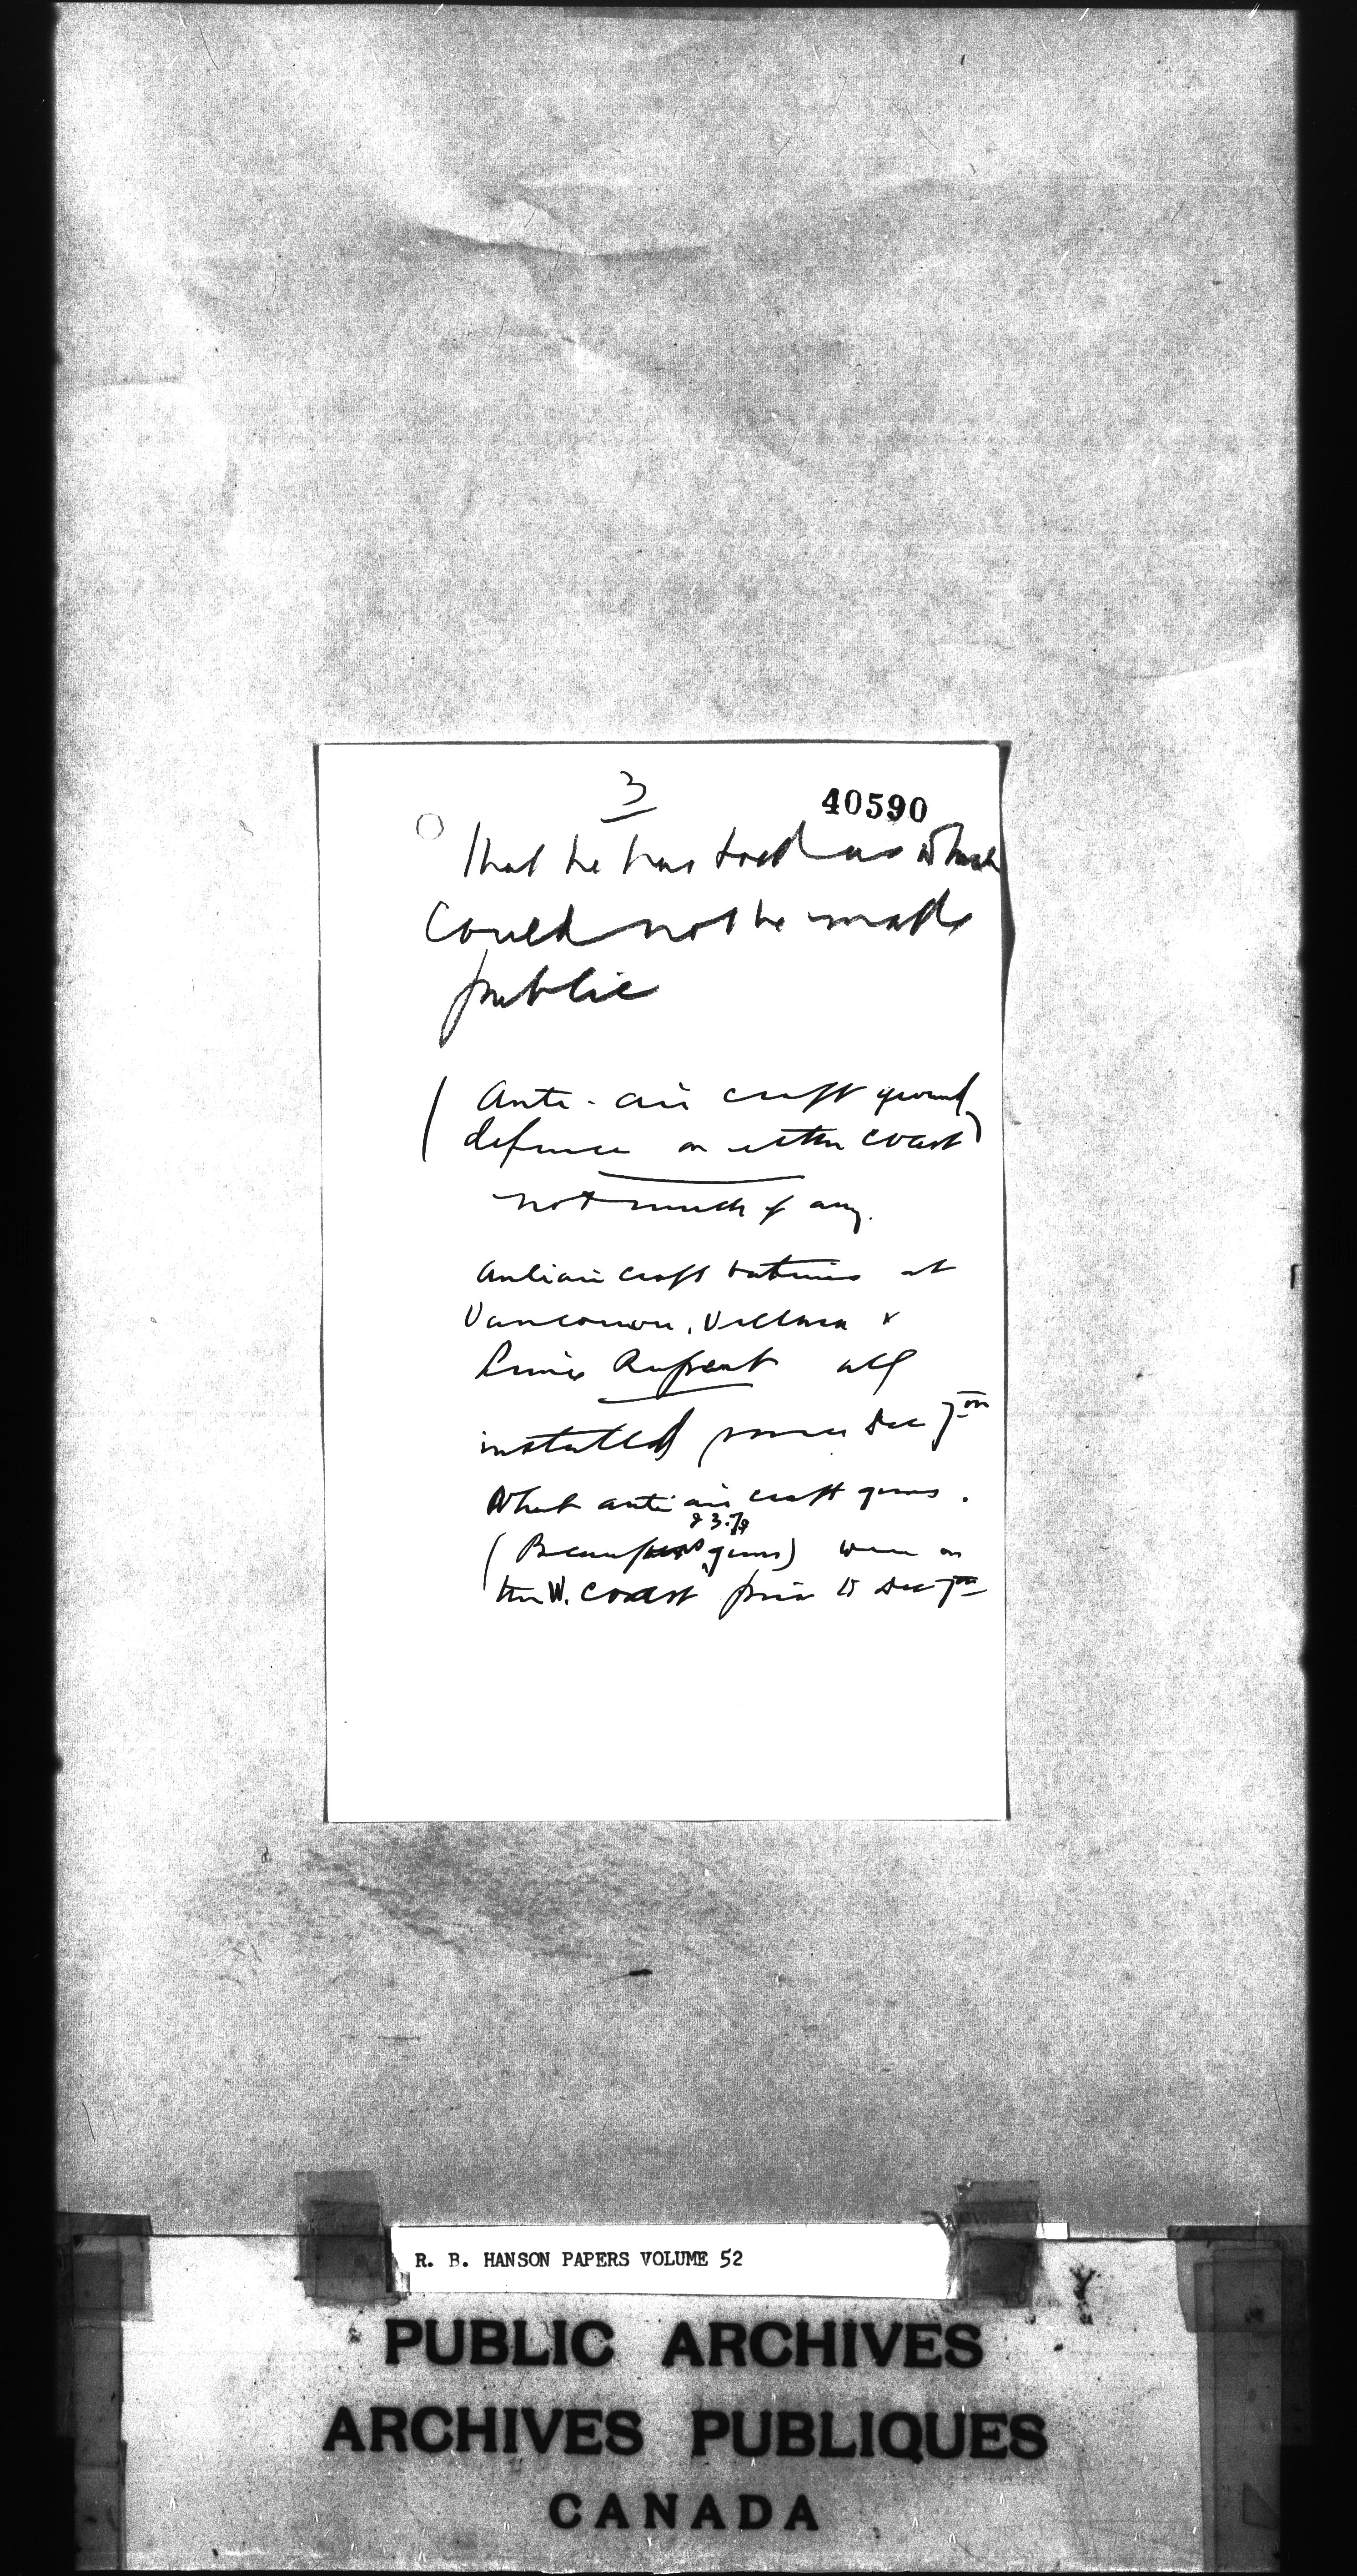 3
40590
that he has told us which
could not be made
public
( Anti-air craft ground
defence on either coast )
not much if any.
Antiair craft batteries at
Vancouver, Victoria &
Prince Rupert all
installed since Dec 7th
What anti air craft guns.
& 3.7s
( guns) were on
the W. coast prior to Dec 7th
R. B. HANSON PAPERS VOLUME 52
PUBLIC ARCHIVES
ARCHIVES PUBLIQUES
CANADA